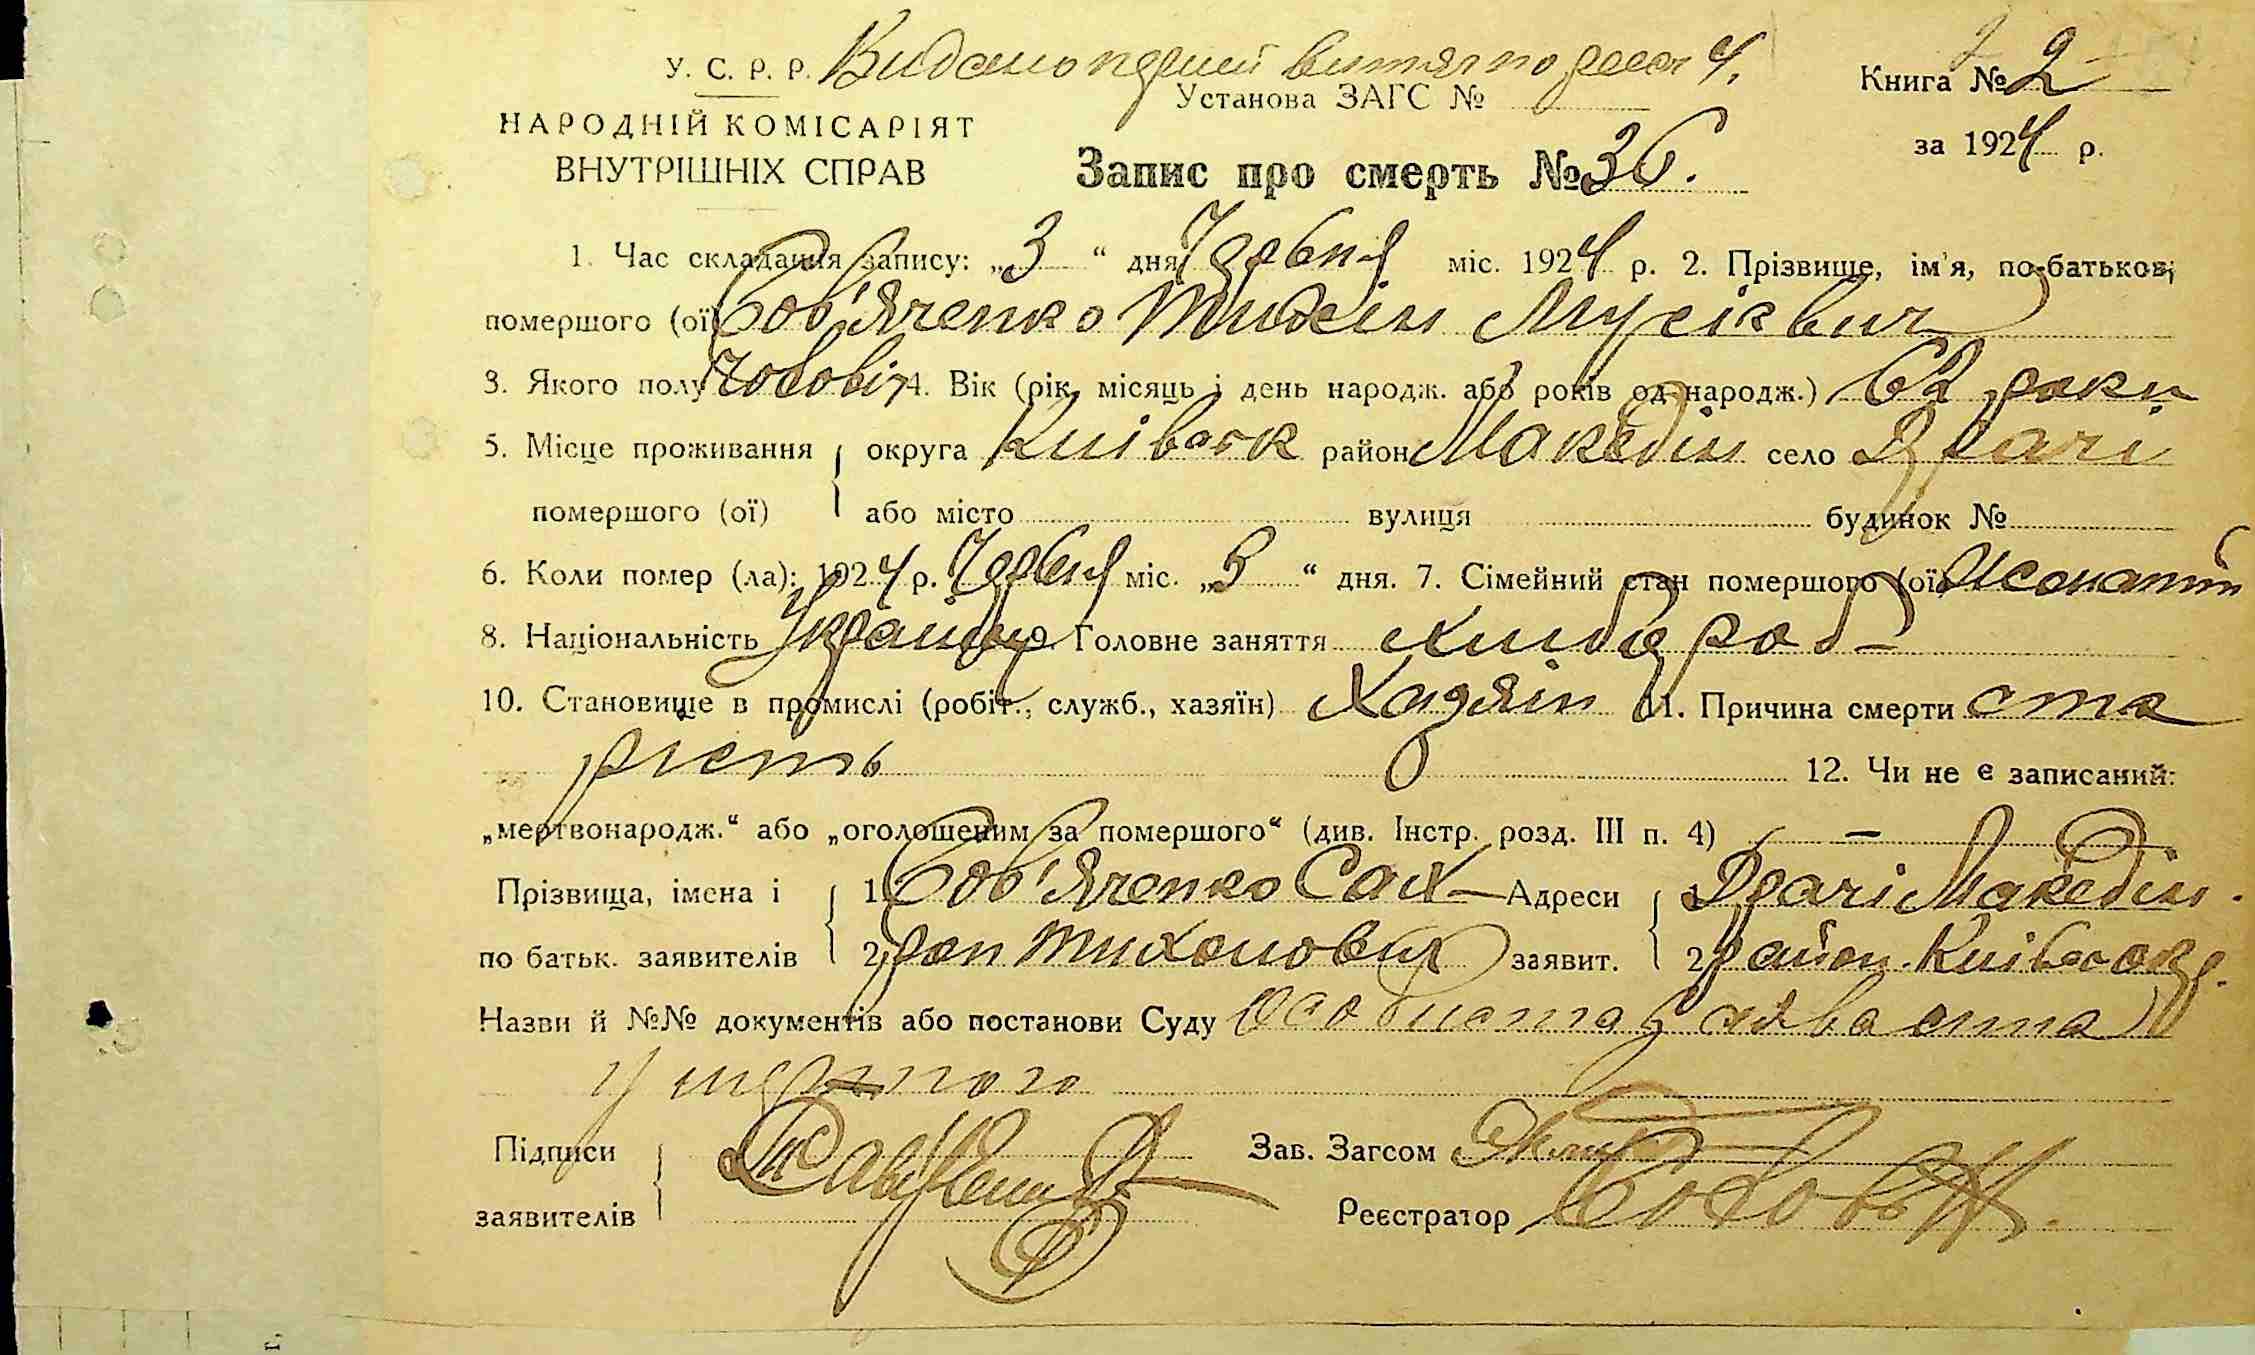 У. С. Р. Р. Видано перший витяг по
Установа ЗАГС №
Книга № 2
НАРОДНІЙ КОМІСАРІЯТ
ВНУТРІШНІХ СПРАВ
за 1924 р.
Запис про смерть № 36.
1. Час складання запису: „3“ дня Червня міс. 1924 р. 2. Прізвище, ім'я, по-батькові
помершого (ої) Сов'яченко Тихін Мусієвич
3. Якого полу Чоловіч 4. Вік (рік, місяць і день народж. або років од народж.) 62 роки
5. Місце проживання округа Київськ район Македін село Драчі
помершого (ої) або місто вулиця будинок №
6. Коли помер (ла): 1924 р. Червня міс. „3“ дня. 7. Сімейний стан помершого (ої) Жонатий
8. Національність Україн. 9. Головне заняття хлібороб-
10. Становище в промислі (робіт., служб., хазяїн) Хазяїн 11. Причина смерти ста
рість 12. Чи не є записаний:
„мертвонародж.“ або „оголошеним за помершого“ (див. Інстр. розд. III п. 4) —
Прізвища, імена і 1. Сов'яченко Сах- Адреси 1. Драчі Македін.
по батьк. заявителів 2. рон Тихонович заявит. 2. район. Київсокр.
Назви й №№ документів або постанови Суду Особиста заява сина
умершого
Підписи
Зав. Загсом
заявителів
Реєстратор